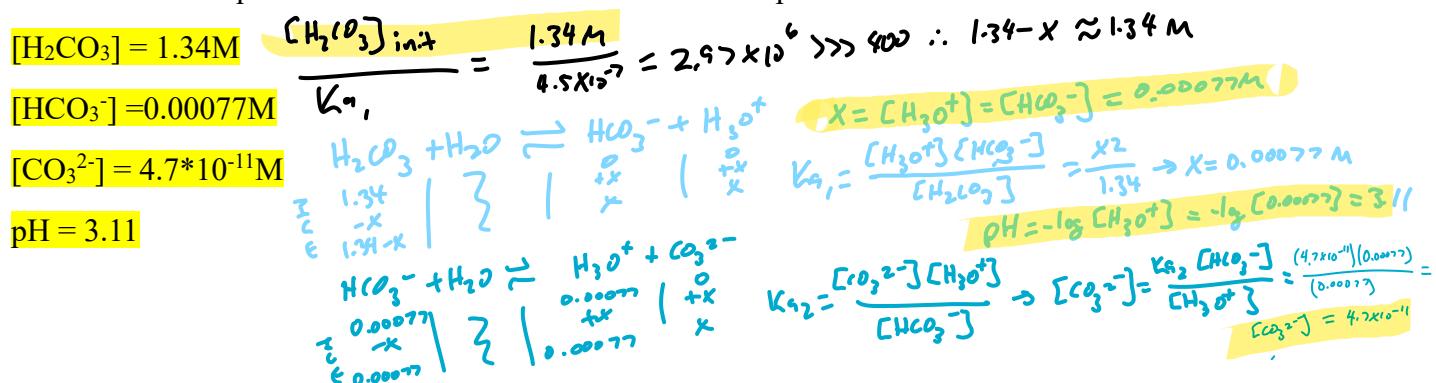 [H₂CO₃] = 1.34M
[HCO₃⁻] =0.00077M
[CO₃²⁻] = 4.7*10⁻¹¹M
pH = 3.11
[H₂CO₃]init / Ka₁ = 1.34 M / 4.5x10⁻⁷ = 2.97x10⁶ >>> 400 ∴ 1.34-x ≈ 1.34 M
x = [H₃O⁺] = [HCO₃⁻] = 0.00077M
H₂CO₃ + H₂O ⇌ HCO₃⁻ + H₃O⁺
I 1.34 | | 0 | 0
C -x | | +x | +x
E 1.34-x | | x | x
Ka₁ = [H₃O⁺][HCO₃⁻] / [H₂CO₃] = x2 / 1.34 → x = 0.00077 M
pH = -log [H₃O⁺] = -log [0.00077] = 3.11
HCO₃⁻ + H₂O ⇌ H₃O⁺ + CO₃²⁻
I 0.00077 | | 0.00077 | 0
C -x | | +x | +x
E 0.00077 | | 0.00077 | x
Ka₂ = [CO₃²⁻][H₃O⁺] / [HCO₃⁻] → [CO₃²⁻] = Ka₂ [HCO₃⁻] / [H₃O⁺] = (4.7x10⁻¹¹)(0.00077) / (0.00077) =
[CO₃²⁻] = 4.7x10⁻¹¹